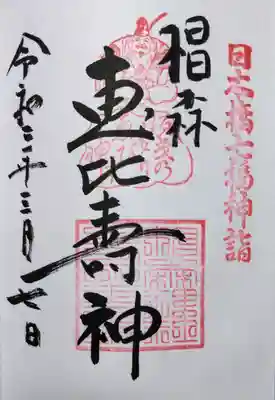 日本橋七福神詣
椙森
恵比寿神
令和三年三月十七日